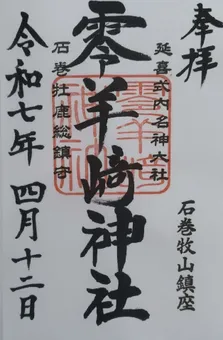 奉拝
石巻牧山鎮座
延喜式内名神大社
零羊崎神社
石巻牡鹿総鎮守
令和七年四月十二日